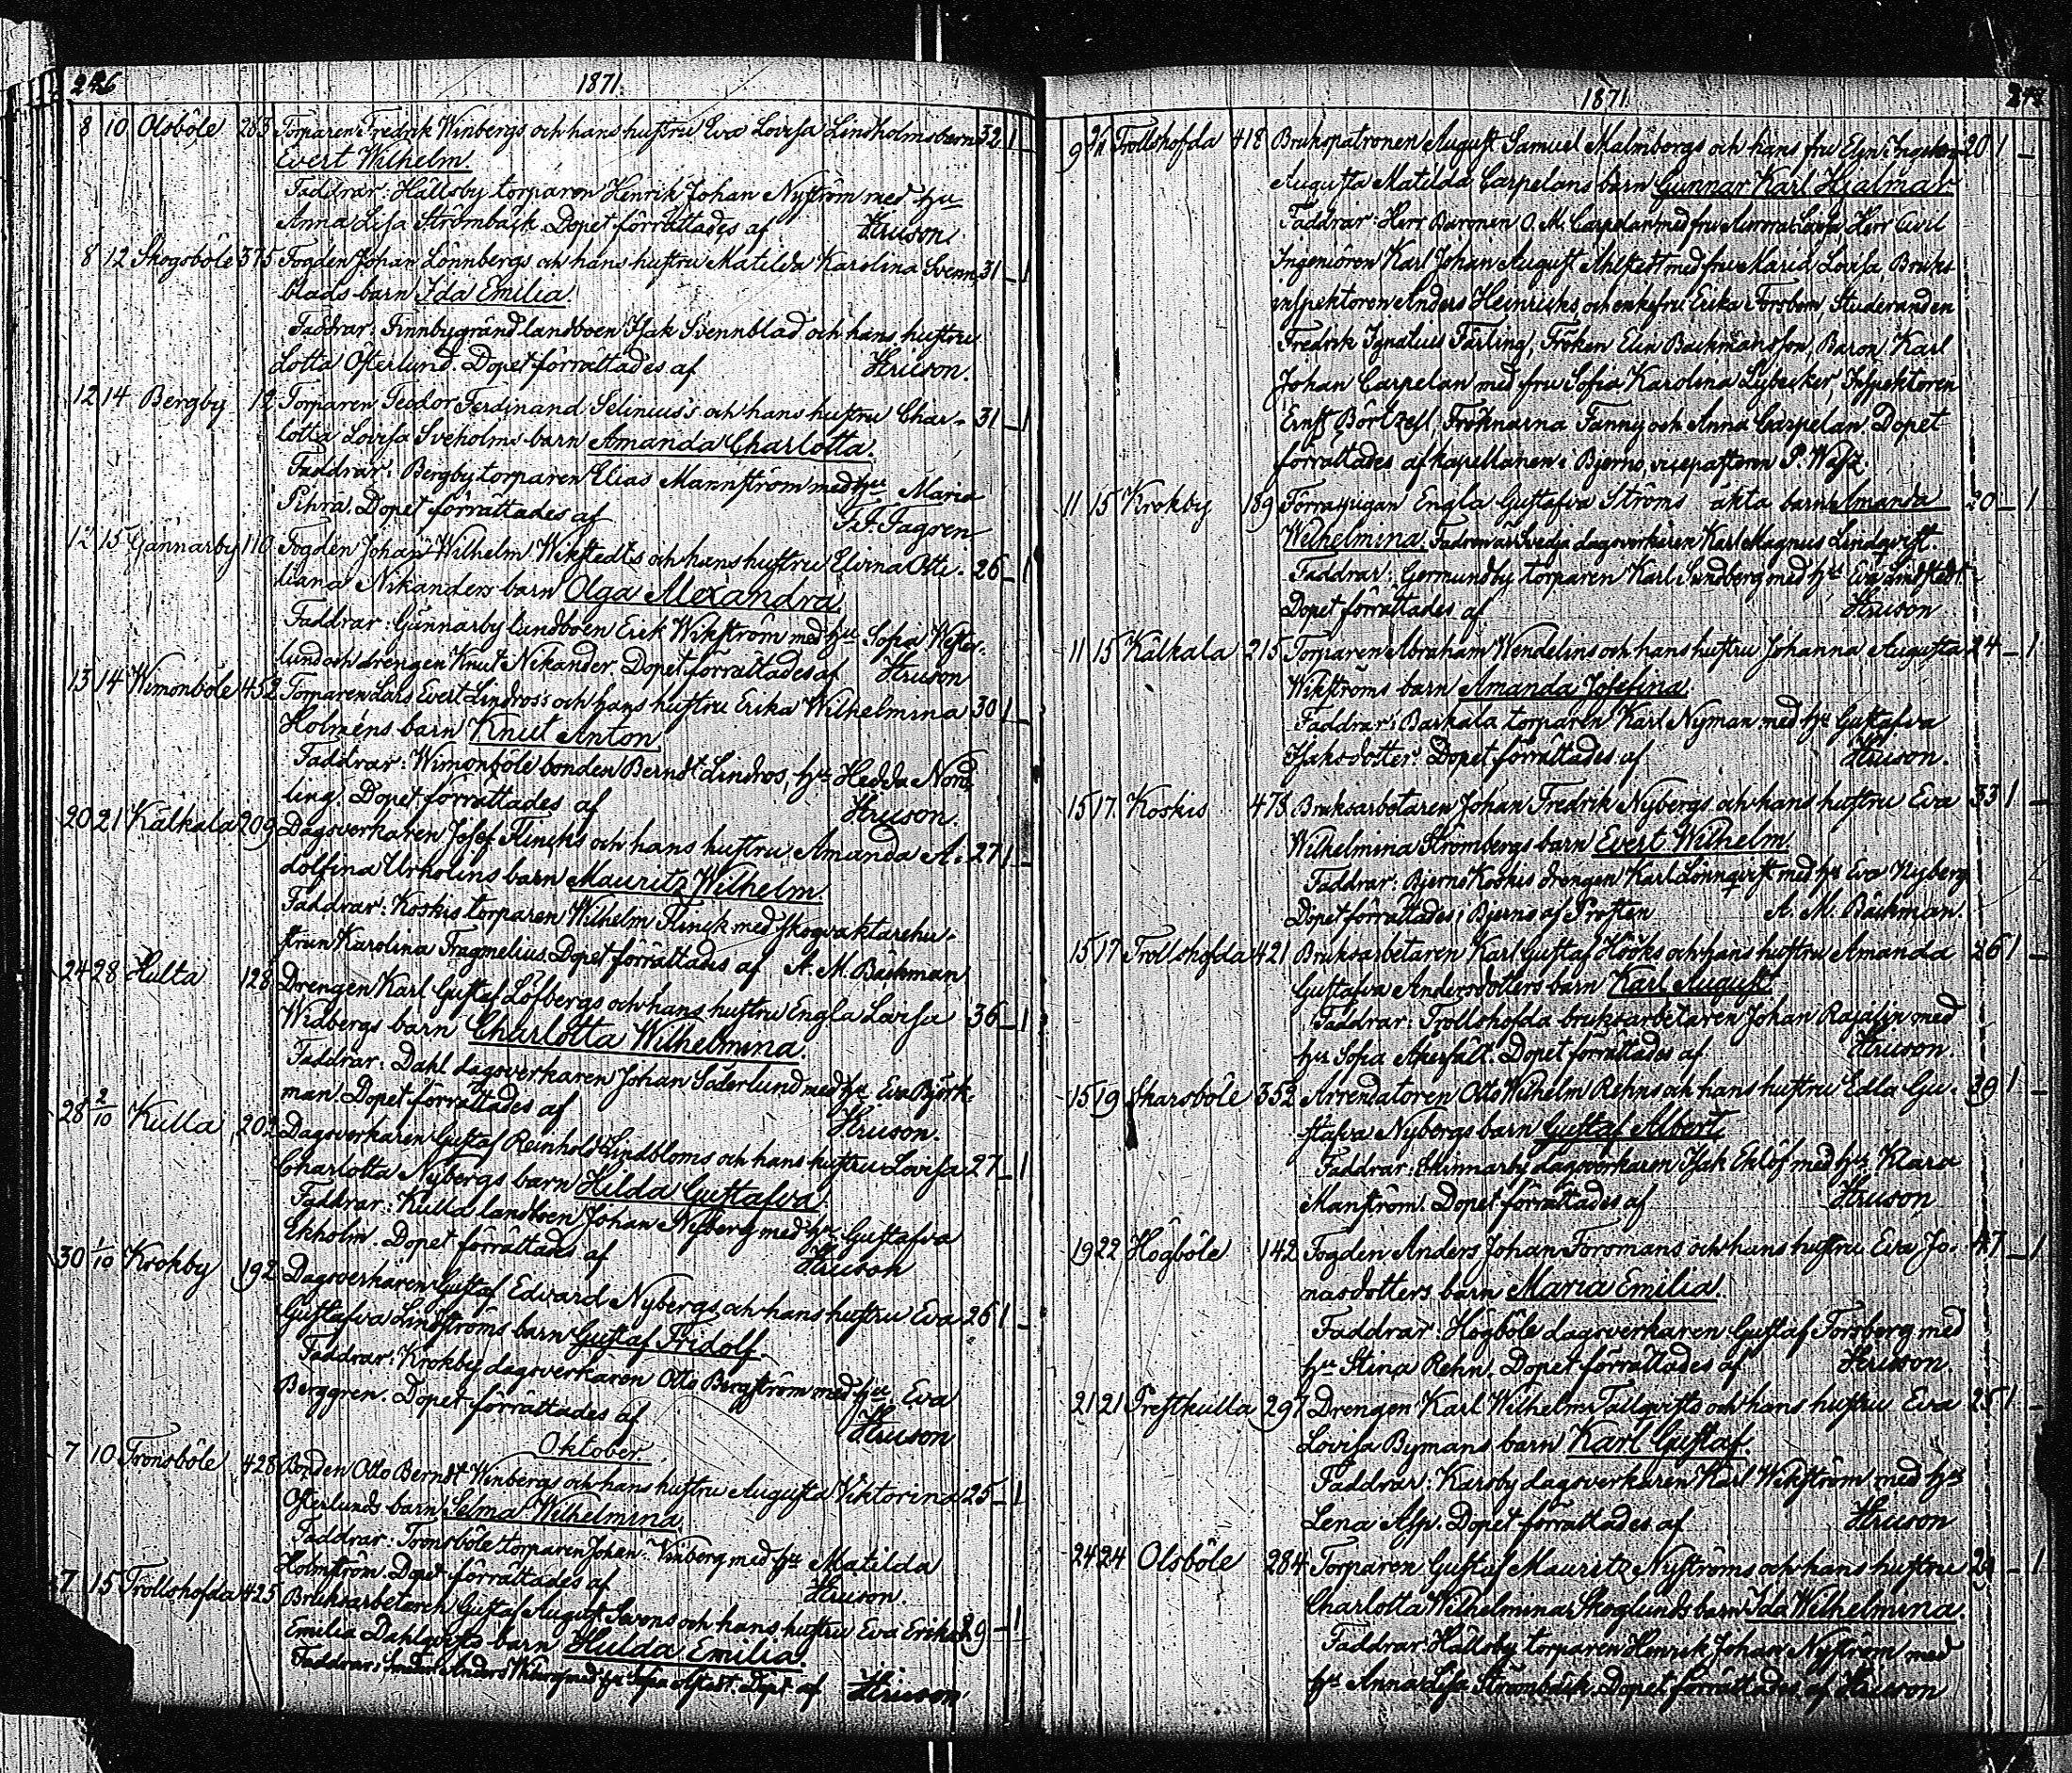 246 1871.
8 10 Olsböle 283 Torparen Fredrik Winbergs och hans hustru Eva Lovisa Lindholms barn 32 1 _
Evert Wilhelm.
Faddrar: Hällsby torparen Henrik Johan Nyström med hu
Anna Lisa Strömbäck. Dopet förrättades af Hruson.
8 12 Skogsböle 375 Fogden Johan Lönnbergs och hans hustru Matilda Karolina Svenn, 31 _ 1
blads barn Ida Emilia.
Faddrar: Finnbygränd landboen Isak Svennblad och hans hustru
Lotta Österlund. Dopet förrättades af Hruson.
12 14 Bergby 12 Torparen Teodor Ferdinand Selinius's och hans hustru Char- 31 _ 1
lotta Lovisa Sveholms barn Amanda Charlotta.
Faddrar: Bergby torparen Elias Mannström med hu Maria
Pihra. Dopet förrättades af F. Fagren
12 15 Gännarby 110 Fogden Johan Wilhelm Wikstedts och hans hustru Elvina Otti- 26 _ 1
liana Nikanders barn Olga Alexandra.
Faddrar: Gännarby landboen Erik Wikström med hu Sofia Wester-
lund och drengen Knut Nikander. Dopet förrättades af Hruson
13 14 Wimonböle 452 Torparen Lars Evert Lindros's och hans hustru Erika Wilhelmina 30 1 _
Holméns barn Knut Anton
Faddrar: Wimonböle bonden Berndt Lindros, hu Hedda Nord
ling. Dopet förrättades af Hruson.
20 21 Kälkala 209 Dagsverkaren Josef Flincks och hans hustru Amanda A- 27 1 _
dolfina Urholins barn Mauritz Wilhelm.
Faddrar: Koskis torparen Wilhelm Flinck med skogvaktarehu-
strun Karolina Fragmelius. Dopet förrättades af A. M. Bäckman
24 28 Hulta 128 Drengen Karl Gustaf Löfbergs och hans hustru Engla Lovisa 36 _ 1
Widbergs barn Charlotta Wilhelmina.
Faddrar: Dahl dagsverkaren Johan Söderlund med hu Eva Björk-
man. Dopet förrättades af Hruson.
28 2/10 Kulla 202 Dagsverkaren Gustaf Reinhold Lindbloms och hans hustru Lovisa 27 _ 1
Charlotta Nybergs barn Hilda Gustafva.
Faddrar: Kulla landboen Johan Nyberg med hu Gustafva
Ekholm. Dopet förrättades af Hruson
30 1/10 Krokby 192 Dagsverkaren Gustaf Edvard Nybergs och hans hustru Eva 26 1 _
Gustafva Lindströms barn Gustaf Fridolf.
Faddrar: Krokby dagsverkaren Otto Bergström med hu Eva
Berggren. Dopet förrättades af Hruson
Oktober.
7 10 Tronsböle 428 Bonden Otto Berndt Winbergs och hans hustru Augusta Viktorina 25 _ 1
Österlunds barn Selma Wilhelmina.
Faddrar: Tronsböle torparen Johan Vinberg med hu Matilda
Holmström. Dopet förrättades af Hruson.
7 15 Trollshofda 425 Bruksarbetaren Gustaf August Sevons och hans hustru Eva Erika 39 _ 1
Emilia Dahlqvists barn Hulda Emilia.
Faddrar: Smeden Anders Wiberg med hu Sofia Dopet af Hruson
1871. 247
9 Trollshofda 418 Brukspatronen August Samuel Malmborgs och hans fru Elin Ingeborg 20 1 _
Augusta Matilda Carpelans barn Gunnar Karl Hjalmar
Faddrar: Herr Baronen O. M. Carpelan med fru Aurora Lovisa Herr Civil
Ingeniören Karl Johan August Ahlstedt med fru Maria Lovisa, Bruks
inspektoren Anders Heinricks, och enkefru Erika Forsbom, Studeranden
Fredrik Ignatius Färling, Fröken Elin Backmansson, Baron Karl
Johan Carpelan med fru Sofia Karolina Lybecker, Inspektoren
Ernst Börtzell, Fröknarna Fanny och Anna Carpelan. Dopet
förrättades af kapellanen i Bjerno, vicepastoren P. Wasz.
11 15 Krokby 189 Förra pigan Engla Gustafva Ströms äkta barn Amanda 20 _ 1
Wilhelmina. Fadren är Svedja dagsverkaren Karl Magnus Lindqvist.
Faddrar: Germundby torparen Karl Sandberg med hu Eva Lindstedt.
Dopet förrättades af Hruson
11 15 Kälkala 215 Torparen Abraham Wendelins och hans hustru Johanna Augusta 24 _ 1
Wikströms barn Amanda Josefina.
Faddrar: Barkala torparen Karl Nyman med hu Gustafva
Isaksdotter. Dopet förrättades af Hruson.
15 17 Koskis 475 Bruksarbetaren Johan Fredrik Nybergs och hans hustru Eva 33 1 _
Wilhelmina Strömbergs barn Evert Wilhelm.
Faddrar: Bjerno Koskis drengen Karl Lönnqvist med hu Eva Nyberg
Dopet förrättades i Bjerno af Prosten A. M. Bäckman.
15 17 Trollshofda 421 Bruksarbetaren Karl Gustaf Hööks och hans hustru Amanda 26 1 _
Gustafva Andersdotters barn Karl August.
Faddrar: Trollshofda bruksarbetaren Johan Rajalin med
hu Sofia Åkerfält. Dopet förrättades af Hruson.
15 19 Skarsböle 352 Arrendatoren Otto Wilhelm Rehns och hans hustru Edla Gu- 39 1 _
stafva Nybergs barn Gustaf Albert.
Faddrar: Skinnarby dagsverkaren Isak Eklöf med hu Klara
Manström. Dopet förrättades af Hruson
19 22 Högböle 142 Fogden Anders Johan Forsmans och hans hustru Eva Jo- 47 _ 1
nasdotters barn Maria Emilia.
Faddrar: Högböle dagsverkaren Gustaf Forsberg med
hu Stina Rehn. Dopet förrättades af Hruson.
21 21 Prestkulla 297 Drengen Karl Wilhelm Tallqvists och hans hustru Eva 25 1 _
Lovisa Bymans barn Karl Gustaf.
Faddrar: Karsby dagsverkaren Karl Wikström med hu
Lena Alp. Dopet förrättades af Hruson
24 24 Olsböle 284 Torparen Gustaf Mauritz Nyströms och hans hustru 29 _ 1
Charlotta Wilhelmina Skoglunds barn Ida Wilhelmina.
Faddrar: Hällsby torparen Henrik Johan Nyström med
hu Anna Lisa Strömbäck. Dopet förrättades af Hruson